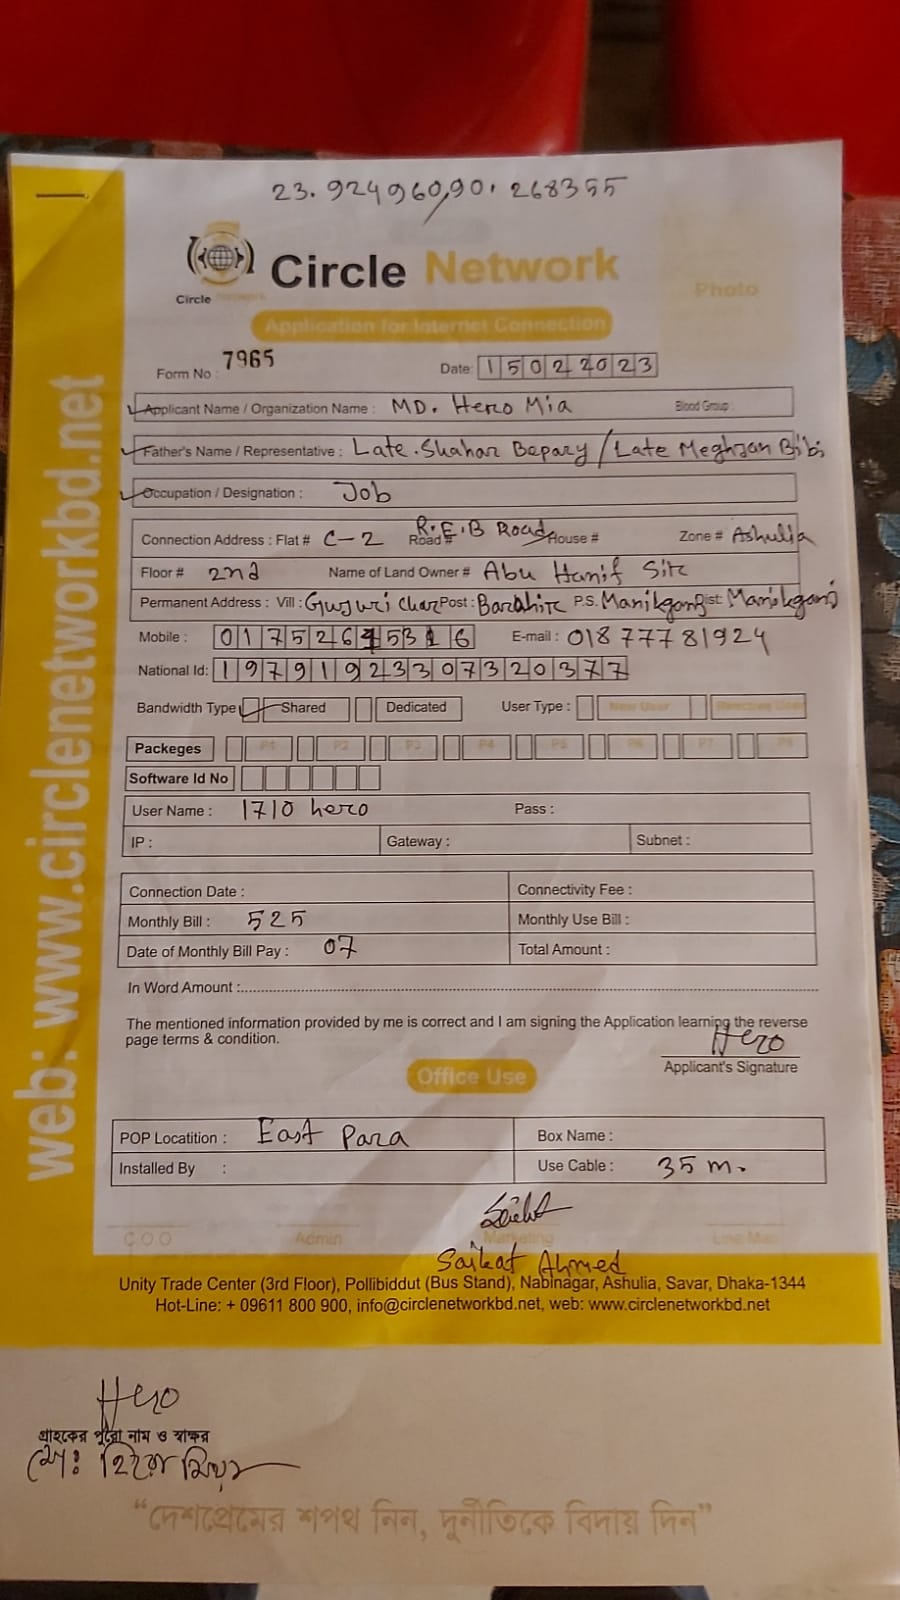 23.924960,90.268355
Circle Network
Circle Network
Photo
Application for Internet Connection
Form No : 7965 Date: 15022023
Applicant Name / Organization Name : MD. Hero Mia Blood Group :
Father's Name / Representative : Late. Shahar Bepary / Late Meghjan Bibi
Occupation / Designation : Job
Connection Address : Flat # C-2 Road # R.E.B Road House # Zone # Ashulia
Floor # 2nd Name of Land Owner # Abu Hanif Sir
Permanent Address : Vill : Gujuri Char Post : Barahir P.S. Manikganj Dist: Manikganj
Mobile : E-mail : 01877781924
National Id: 19791923307320377
Bandwidth Type Shared Dedicated User Type : New User
Packeges P1 P2 P3 P4 P5 P6 P7 P8
Software Id No
User Name : 1710 hero Pass :
IP : Gateway : Subnet :
Connection Date : Connectivity Fee :
Monthly Bill : 525 Monthly Use Bill :
Date of Monthly Bill Pay : 07 Total Amount :
In Word Amount :
The mentioned information provided by me is correct and I am signing the Application learning the reverse
page terms & condition.
Hero
Applicant's Signature
Office Use
POP Locatition : East Para Box Name :
Installed By : Use Cable : 35 m.
C O O Admin Marketing Line Man
Saikat Ahmed
Unity Trade Center (3rd Floor), Pollibiddut (Bus Stand), Nabinagar, Ashulia, Savar, Dhaka-1344
Hot-Line: + 09611 800 900, info@circlenetworkbd.net, web: www.circlenetworkbd.net
web: www.circlenetworkbd.net
Hero
গ্রাহকের পুরো নাম ও স্বাক্ষর
মো: হিরো মিয়া
“দেশপ্রেমের শপথ নিন, দুর্নীতিকে বিদায় দিন”